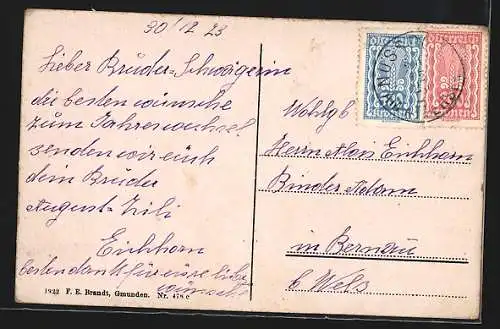 30/12 23
Lieber Bruder-Schwägerin
die besten wünsche
zum Jahreswechsel
senden wir euch
dein Bruder
August-Zili
Eichhorn
besten dank für eure liebe
wünsche
1922 F. E. Brandt, Gmunden. Nr. 478 c
Österreich
Österreich
Wohlgb
Herrn Alois Eichhorn
Binder Adam
in Bernau
b Wels